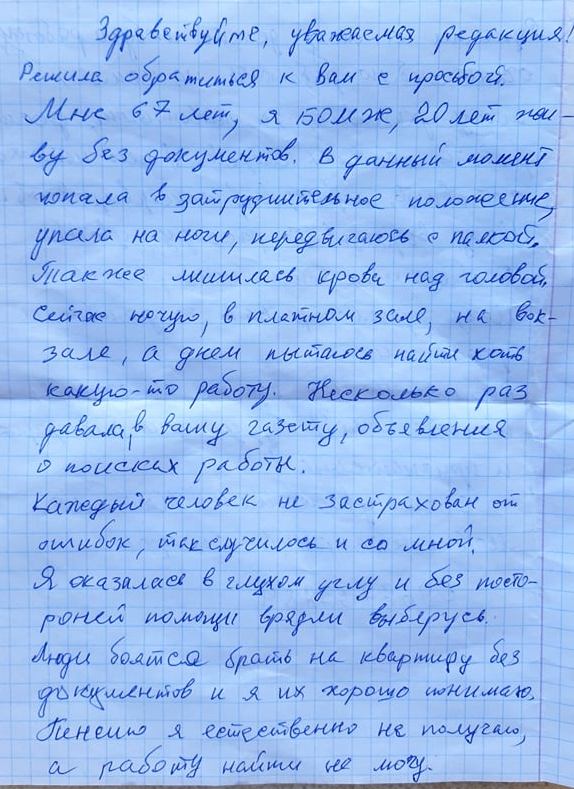 Здравствуйте, уважаемая редакция!
Решила обратиться к Вам с просьбой.
Мне 67 лет, я БОМЖ, 20 лет жи-
ву без документов. В данный момент
попала в затруднительное положение,
упала на ноги, передвигаюсь с палкой.
Также лишилась крова над головой.
Сейчас ночую, в платном зале, на вок-
зале, а днем пытаюсь найти хоть
какую-то работу. Несколько раз
давала, в вашу газету, объявления
о поисках работы.
Каждый человек не застрахован от
ошибок, так случилось и со мной.
Я оказалась в глухом углу и без посто-
роней помощи врядли выберусь.
Люди боятся брать на квартиру без
документов и я их хорошо понимаю.
Пенсию я естественно не получаю,
а работу найти не могу.